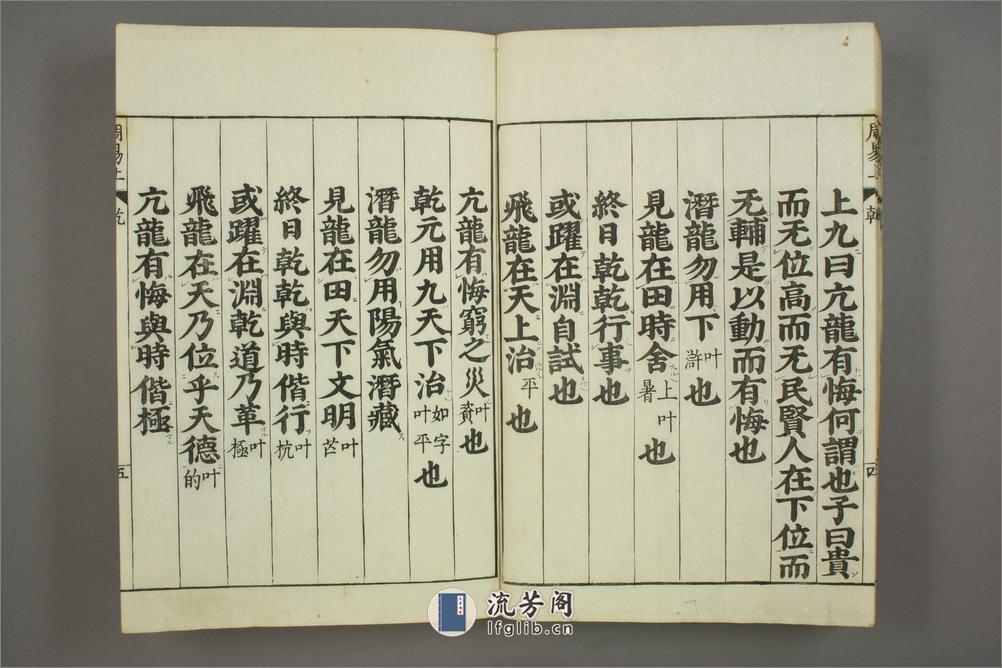 周易上 乾 四
上九曰亢龍有悔何謂也子曰貴
而无位高而无民賢人在下位而
无輔是以動而有悔也
潛龍勿用下叶滸也
見龍在田時舍上叶暑也
終日乾乾行事也
或躍在淵自試也
飛龍在天上治平也
亢龍有悔窮之災叶資也
乾元用九天下治如字叶平也
潛龍勿用陽氣潛藏
見龍在田天下文明叶芒
終日乾乾與時偕行叶杭
或躍在淵乾道乃革叶極
飛龍在天乃位乎天德叶的
亢龍有悔與時偕極
周易上 乾 五
流芳阁
lfglib.cn